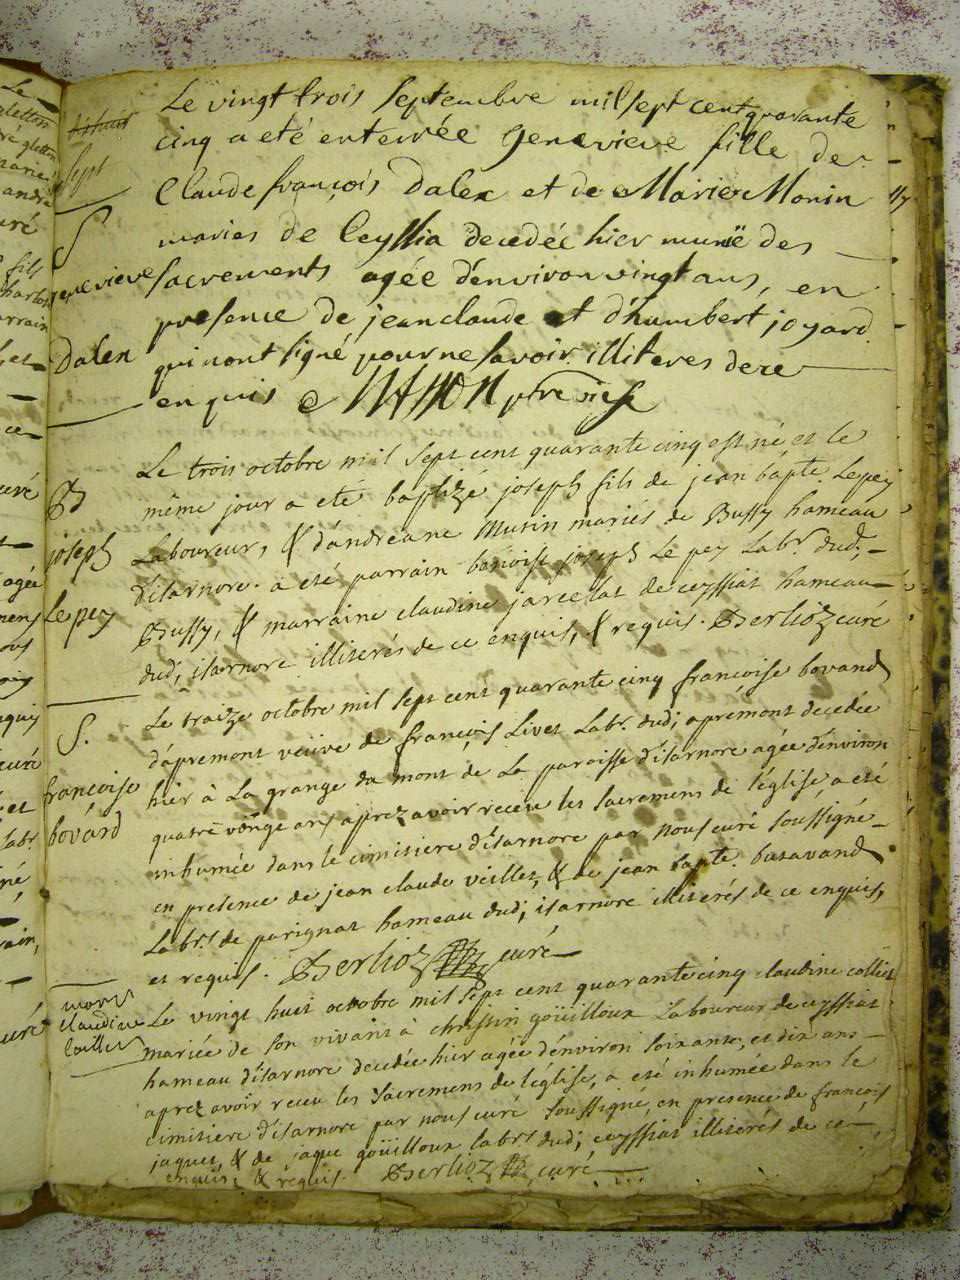 Le vingt trois septembre mil sept cent quarante
cinq a eté enterrée genevieve fille de
Claude françois Dalex et de Marie Monin
maries de Ceyssia decedée hier munïe des
sacrements agée d'environ vingt ans, en
presence de jean claude et d'humbert joyard
qui n'ont signé pour ne savoir illiteres de ce
enquis
Sept
S
genevieve
Dalex
Le trois octobre mil sept cent quarante cinq est né, et le
même jour a eté baptizé joseph fils de jean bapte. Lepey
Laboureur, & d'andreane Mutin mariés de Bussy hameau
d'isarnore. a eté parrain benoise joseph Le pey Labr. dudi
Bussy, & marraine claudine jarcelat de ceyssiat hameau
dudi, isarnore illiterés de ce enquis, & requis. Berlioz curé
B
joseph
Le pey
Le traize octobre mil sept cent quarante cinq françoise bovand
d'apremont veüve de françois Livet Labr. dudi apremont decedée
hier à La grange du mont de La paroisse d'isarnore agée d'environ
quatre vinge ans aprez avoir receu les sacremens de l'église, a eté
inhumée dans le cimitiere d'isarnore par nous curé soussigné
en presence de jean claude veillet, & de jean bapte. bavavand
Labrs. de perignat hameau dudi, isarnore illiterés de ce enquis,
et requis. Berlioz curé
S.
françoise
bovard
Le vingt huit octobre mil sept cent quarante cinq claudine colliet
mariée de son vivant à christin goüilloux Laboureur de ceyssiat
hameau d'isarnore decedée hier agée d'environ soixante, et dix ans
aprez avoir receu les sacremens de l'église, a eté inhumée dans le
cimitiere d'isarnore par nous curé soussigné, en presence de françois
jaquet, & de jaque goüilloux labrs. dudi, ceyssiat illiterés de ce
enquis, & requis. Berlioz curé
mors
Claudine
Colliet